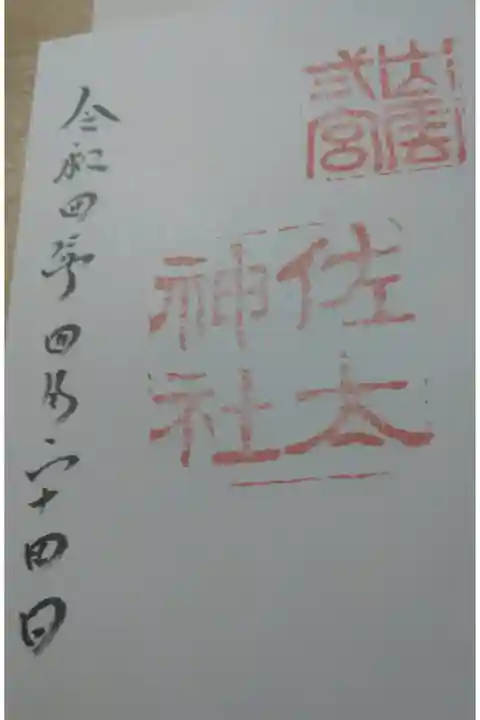 出雲
弐宮
佐太
神社
令和四年四月二十四日